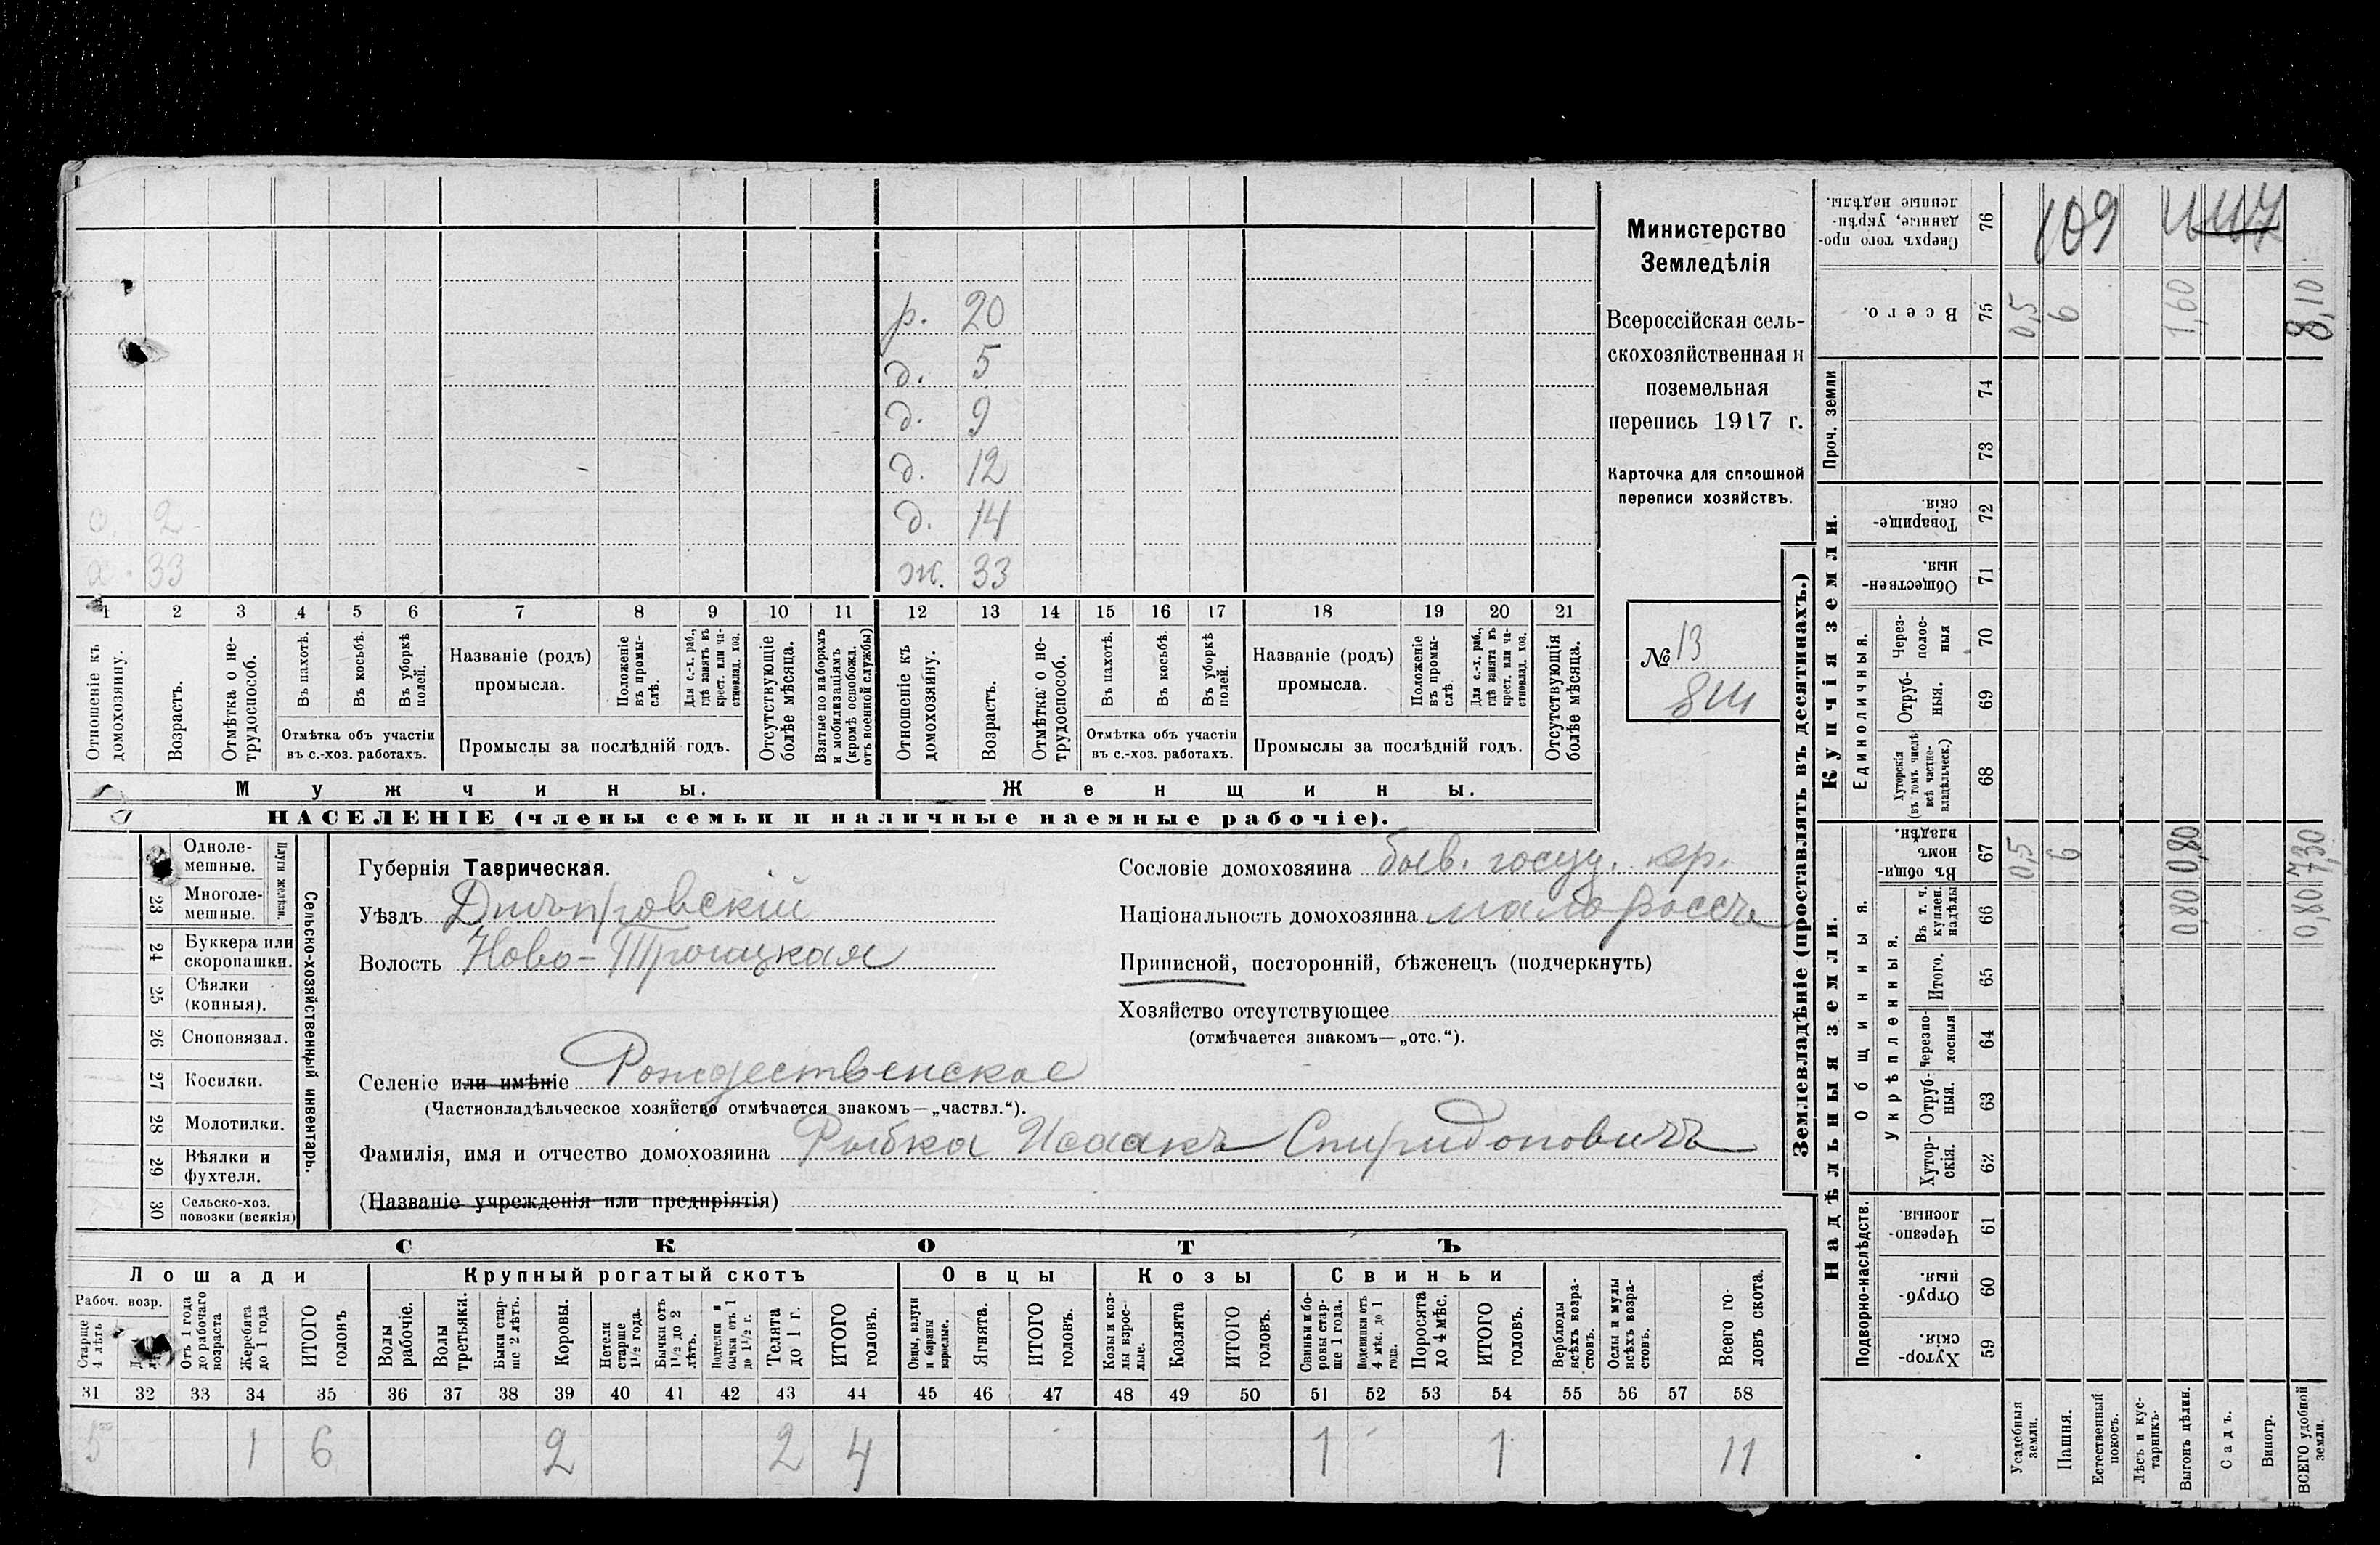 Министерство
Земледѣлія
Всероссійская сель-
скохозяйственная и
поземельная
перепись 1917 г.
Карточка для сплошной
переписи хозяйствъ.
№ 13
р. 20
д. 5
д. 9
д. 12
д. 14
2
33
ж. 33
1 2 3 4 5 6 7 8 9 10 11 12 13 14 15 16 17 18 19 20 21
Отношеніе къ домохозяину.
Возрастъ.
Отмѣтка о не-трудоспособ.
Въ пахотѣ.
Въ косьбѣ.
Въ уборкѣ полей.
Отмѣтка объ участіи
въ с.-хоз. работахъ.
Названіе (родъ)
промысла.
Положеніе въ промы-слѣ.
Для с.-х. раб., гдѣ занятъ въ крест. или ча-стновлад. хоз.
Промыслы за послѣдній годъ.
Отсутствующіе болѣе мѣсяца.
Взятые по наборамъ и мобилизаціямъ (кромѣ освобожд. отъ военной службы)
Отношеніе къ домохозяину.
Возрастъ.
Отмѣтка о не-трудоспособ.
Въ пахотѣ.
Въ косьбѣ.
Въ уборкѣ полей.
Отмѣтка объ участіи
въ с.-хоз. работахъ.
Названіе (родъ)
промысла.
Положеніе въ промы-слѣ
Для с.-х. раб., гдѣ занята въ крест. или ча-стновлад. хоз.
Промыслы за послѣдній годъ.
Отсутствующія болѣе мѣсяца.
Мужчины.
Женщины.
НАСЕЛЕНІЕ (члены семьи и наличные наемные рабочіе).
Сельско-хозяйственный инвентарь.
Плуги желѣзн.
Одноле-
мешные.
23 Многоле-
мешные.
24 Буккера или
скоропашки.
25 Сѣялки
(конныя).
26 Сноповязал.
27 Косилки.
28 Молотилки.
29 Вѣялки и
фухтеля.
30 Сельско-хоз.
повозки (всякія)
Губернія Таврическая.
Уѣздъ Днѣпровскій
Волость Ново-Троицкая
Сословіе домохозяина бывш. госуд. кр.
Національность домохозяина
Приписной, посторонній, бѣженецъ (подчеркнуть)
Хозяйство отсутствующее
(отмѣчается знакомъ—„отс.“).
Селеніе или имѣніе Рождественское
(Частновладѣльческое хозяйство отмѣчается знакомъ—„частвл.“).
Фамилія, имя и отчество домохозяина Рыбка Исаакъ Спиридоновичъ
(Названіе учрежденія или предпріятія)
СКОТЪ
Лошади
Крупный рогатый скотъ
Овцы
Козы
Свиньи
Рабоч. возр.
Старше 4 лѣтъ
Отъ 1 года до рабочаго возраста
Жеребята до 1 года
ИТОГО головъ
Волы рабочіе.
Волы третьяки.
Быки стар-ше 2 лѣтъ.
Коровы.
Нетели старше 1½ года.
Бычки отъ 1½ до 2 лѣтъ.
Подтелки и бычки отъ 1 до 1½ г.
Телята до 1 г.
ИТОГО головъ.
Овцы, валухи и бараны взрослые.
Ягнята.
ИТОГО головъ.
Козы и коз-лы взрос-лые.
Козлята
ИТОГО головъ.
Свиньи и бо-ровы стар-ше 1 года.
Подсвинки отъ 4 мѣс. до 1 года.
Поросята до 4 мѣс.
ИТОГО головъ.
Верблюды всѣхъ возра-стовъ.
Ослы и мулы всѣхъ возра-стовъ.
Всего го-ловъ скота.
31 32 33 34 35 36 37 38 39 40 41 42 43 44 45 46 47 48 49 50 51 52 53 54 55 56 57 58
5 1 6 2 2 4 1 1 11
Землевладѣніе (проставлять въ десятинахъ.)
Надѣльныя земли.
Купчія земли.
Проч. земли
Подворно-наслѣдств.
Общинныя.
Укрѣпленныя.
Единоличныя.
Сверхъ того про-данные, укрѣп-ленные надѣлы. 76
Всего. 75
74
73
Товарище-скія. 72
Обществен-ныя. 71
Через-полос-ныя 70
Отруб-ныя. 69
Хуторскія (въ томъ числѣ всѣ частно-владѣльческ.) 68
Въ общин-номъ владѣн. 67
Въ т. ч. куплен. надѣлы 66
Итого. 65
Черезпо-лосныя 64
Отруб-ныя. 63
Хутор-скія. 62
Черезпо-лосныя. 61
Отруб-ныя. 60
Хутор-скія. 59
Усадебныя земли.
Пашня.
Естественный покосъ.
Лѣсъ и кус-тарникъ.
Выгонъ цѣлин.
Садъ.
Виногр.
ВСЕГО удобной земли.
109
0,5 6 1,60 8,10
0,5 6 0,80 7,30
0,80 0,80